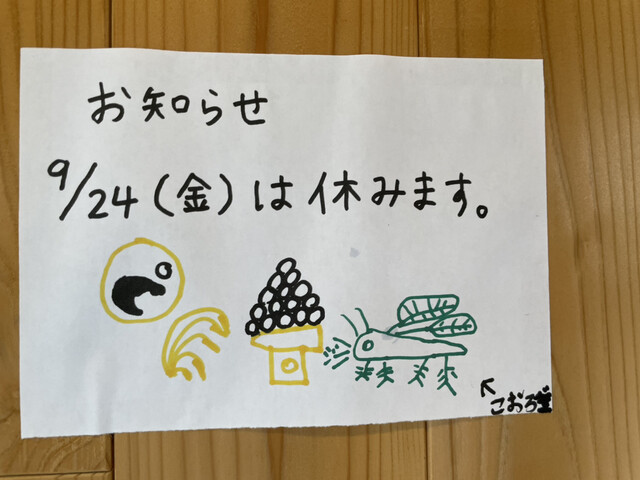 お知らせ
9/24(金)は休みます。
↖
こおろ堂